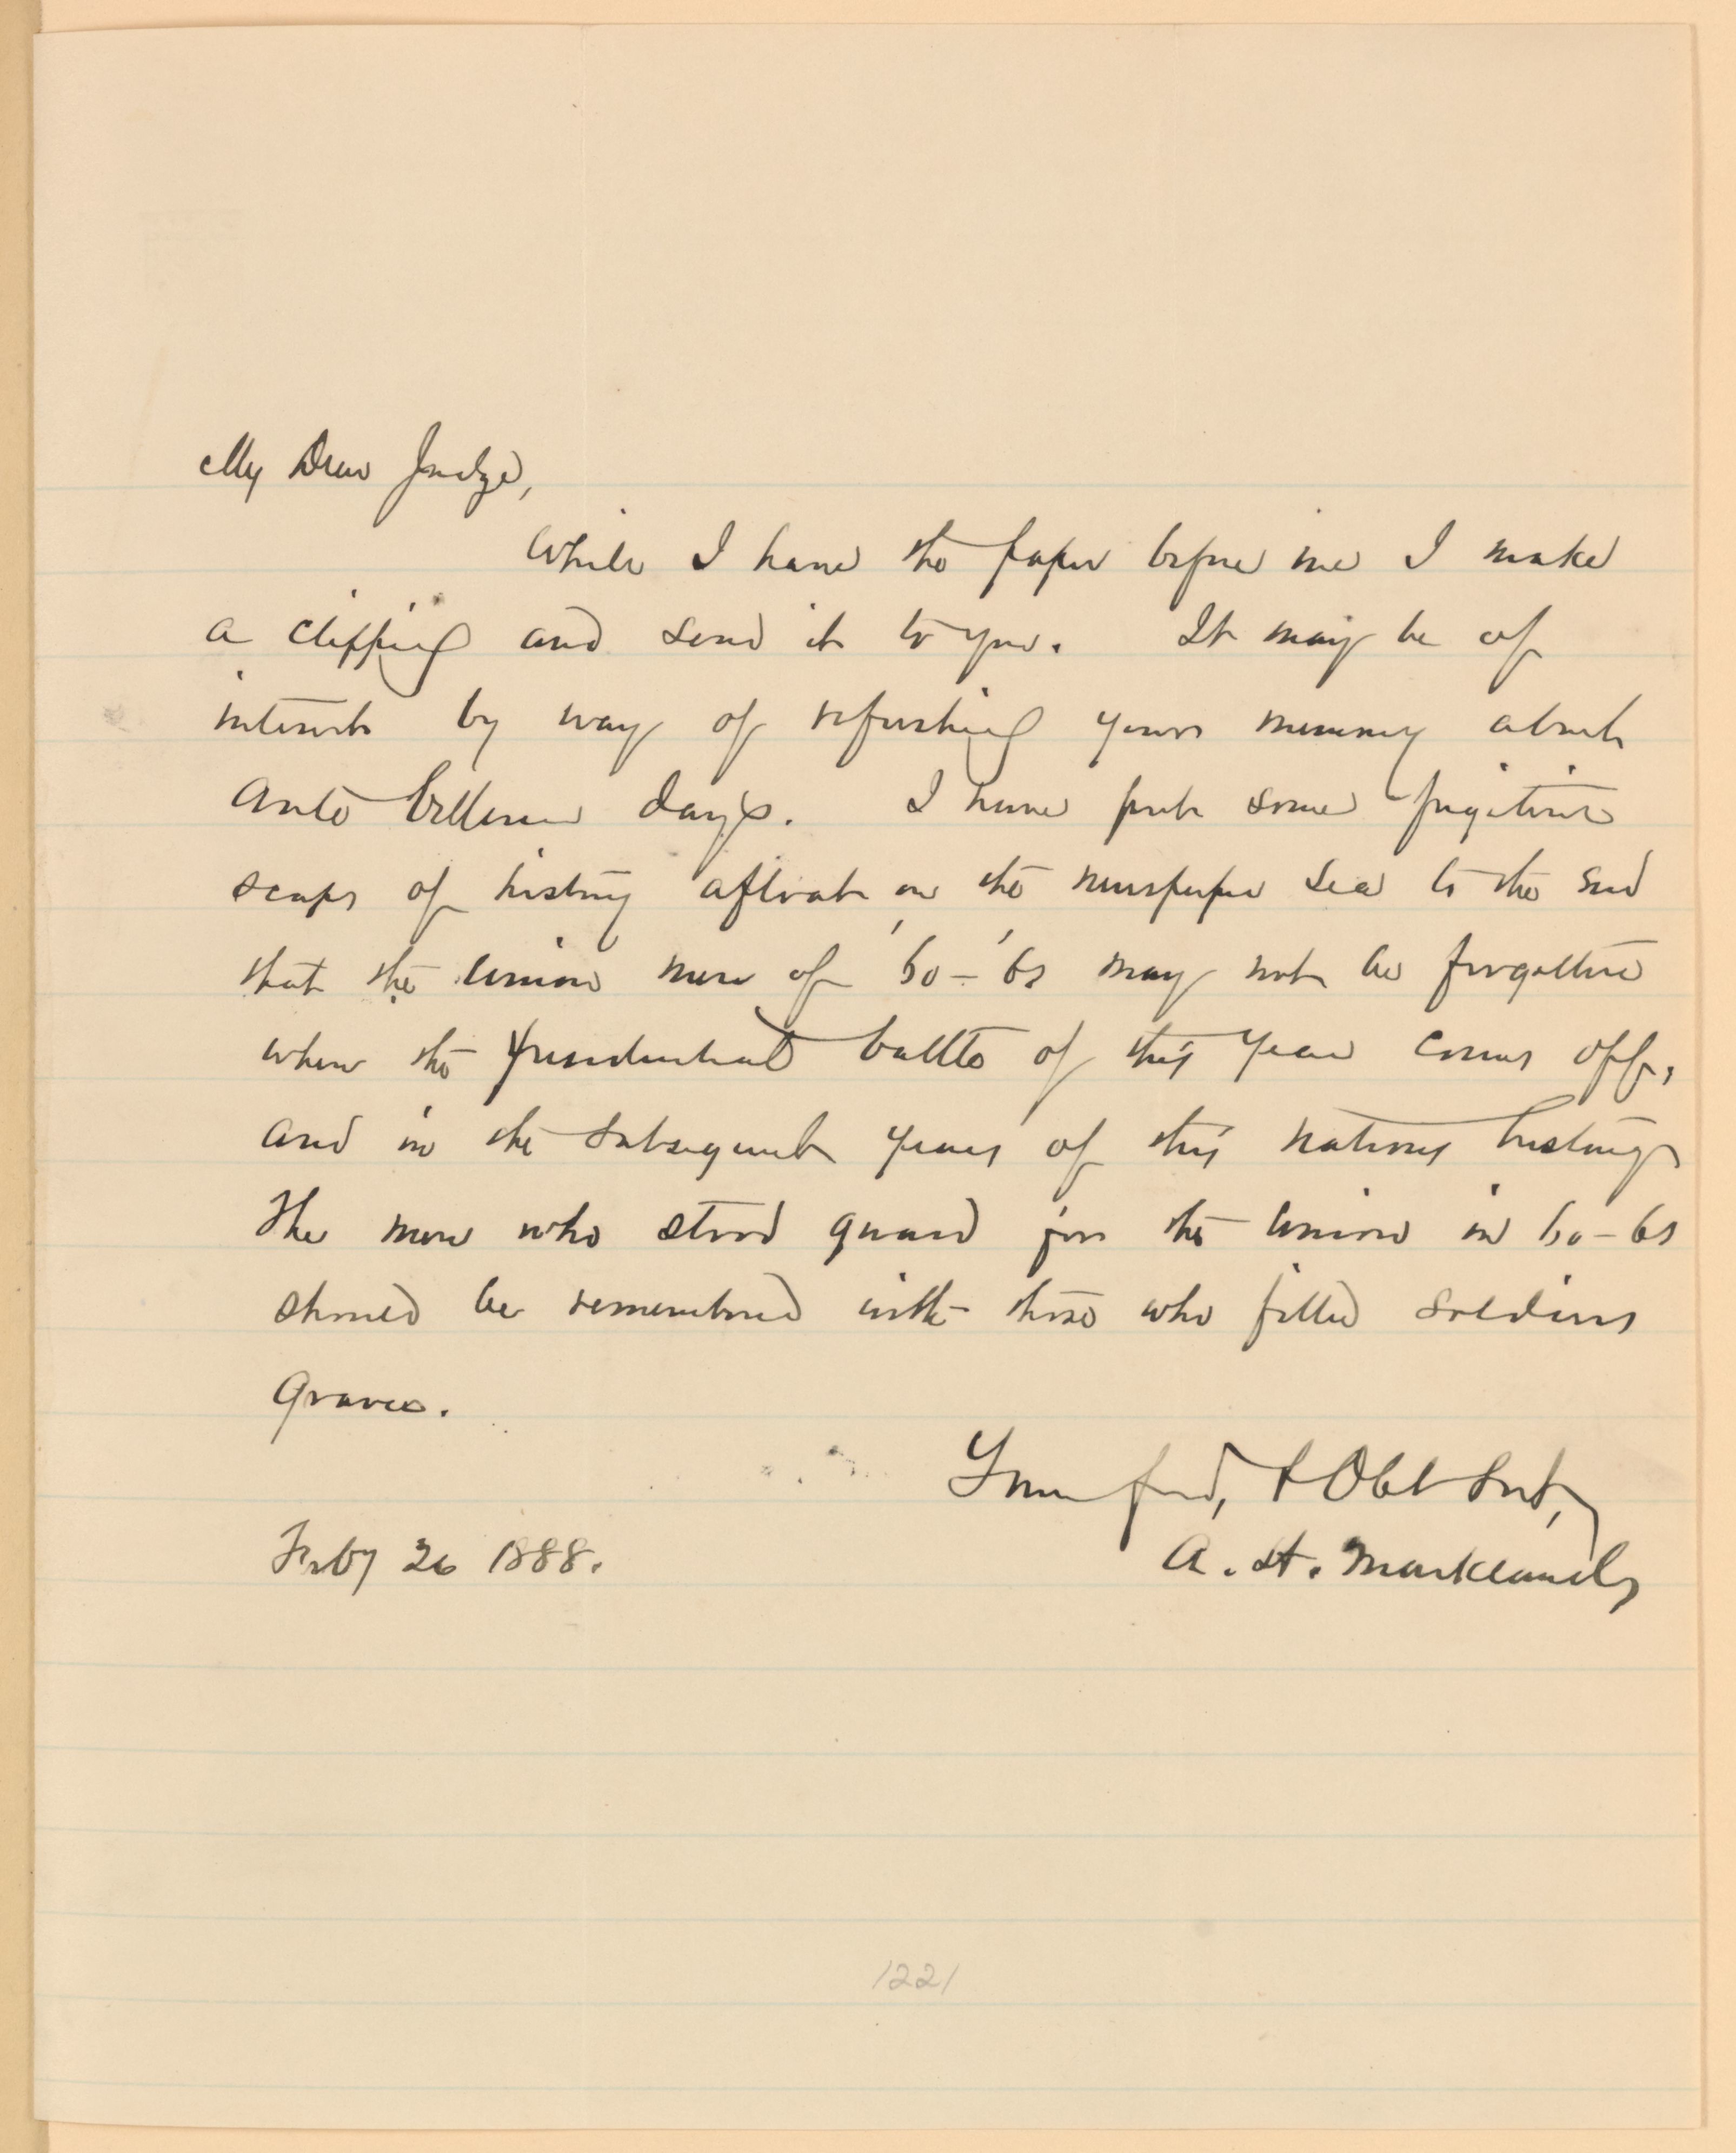 My Dear Judge,
While I have the paper before me I make
a clipping and send it to you. It may be of
interest by way of refreshing your memory about
Ante bellum days. I have put some fugitive
scraps of history afloat on the newspaper sea to the end
that the Union men of '60-'61 may not be forgotten
when the presidential battle of this year comes off,
and in the subsequent years of this nations history
The men who stood guard for the Union in 60-61
should be remembered with those who filled soldiers
graves.
Your frnd, & Obt Svt,
Feby 26 1888. A. H. Markland
1221